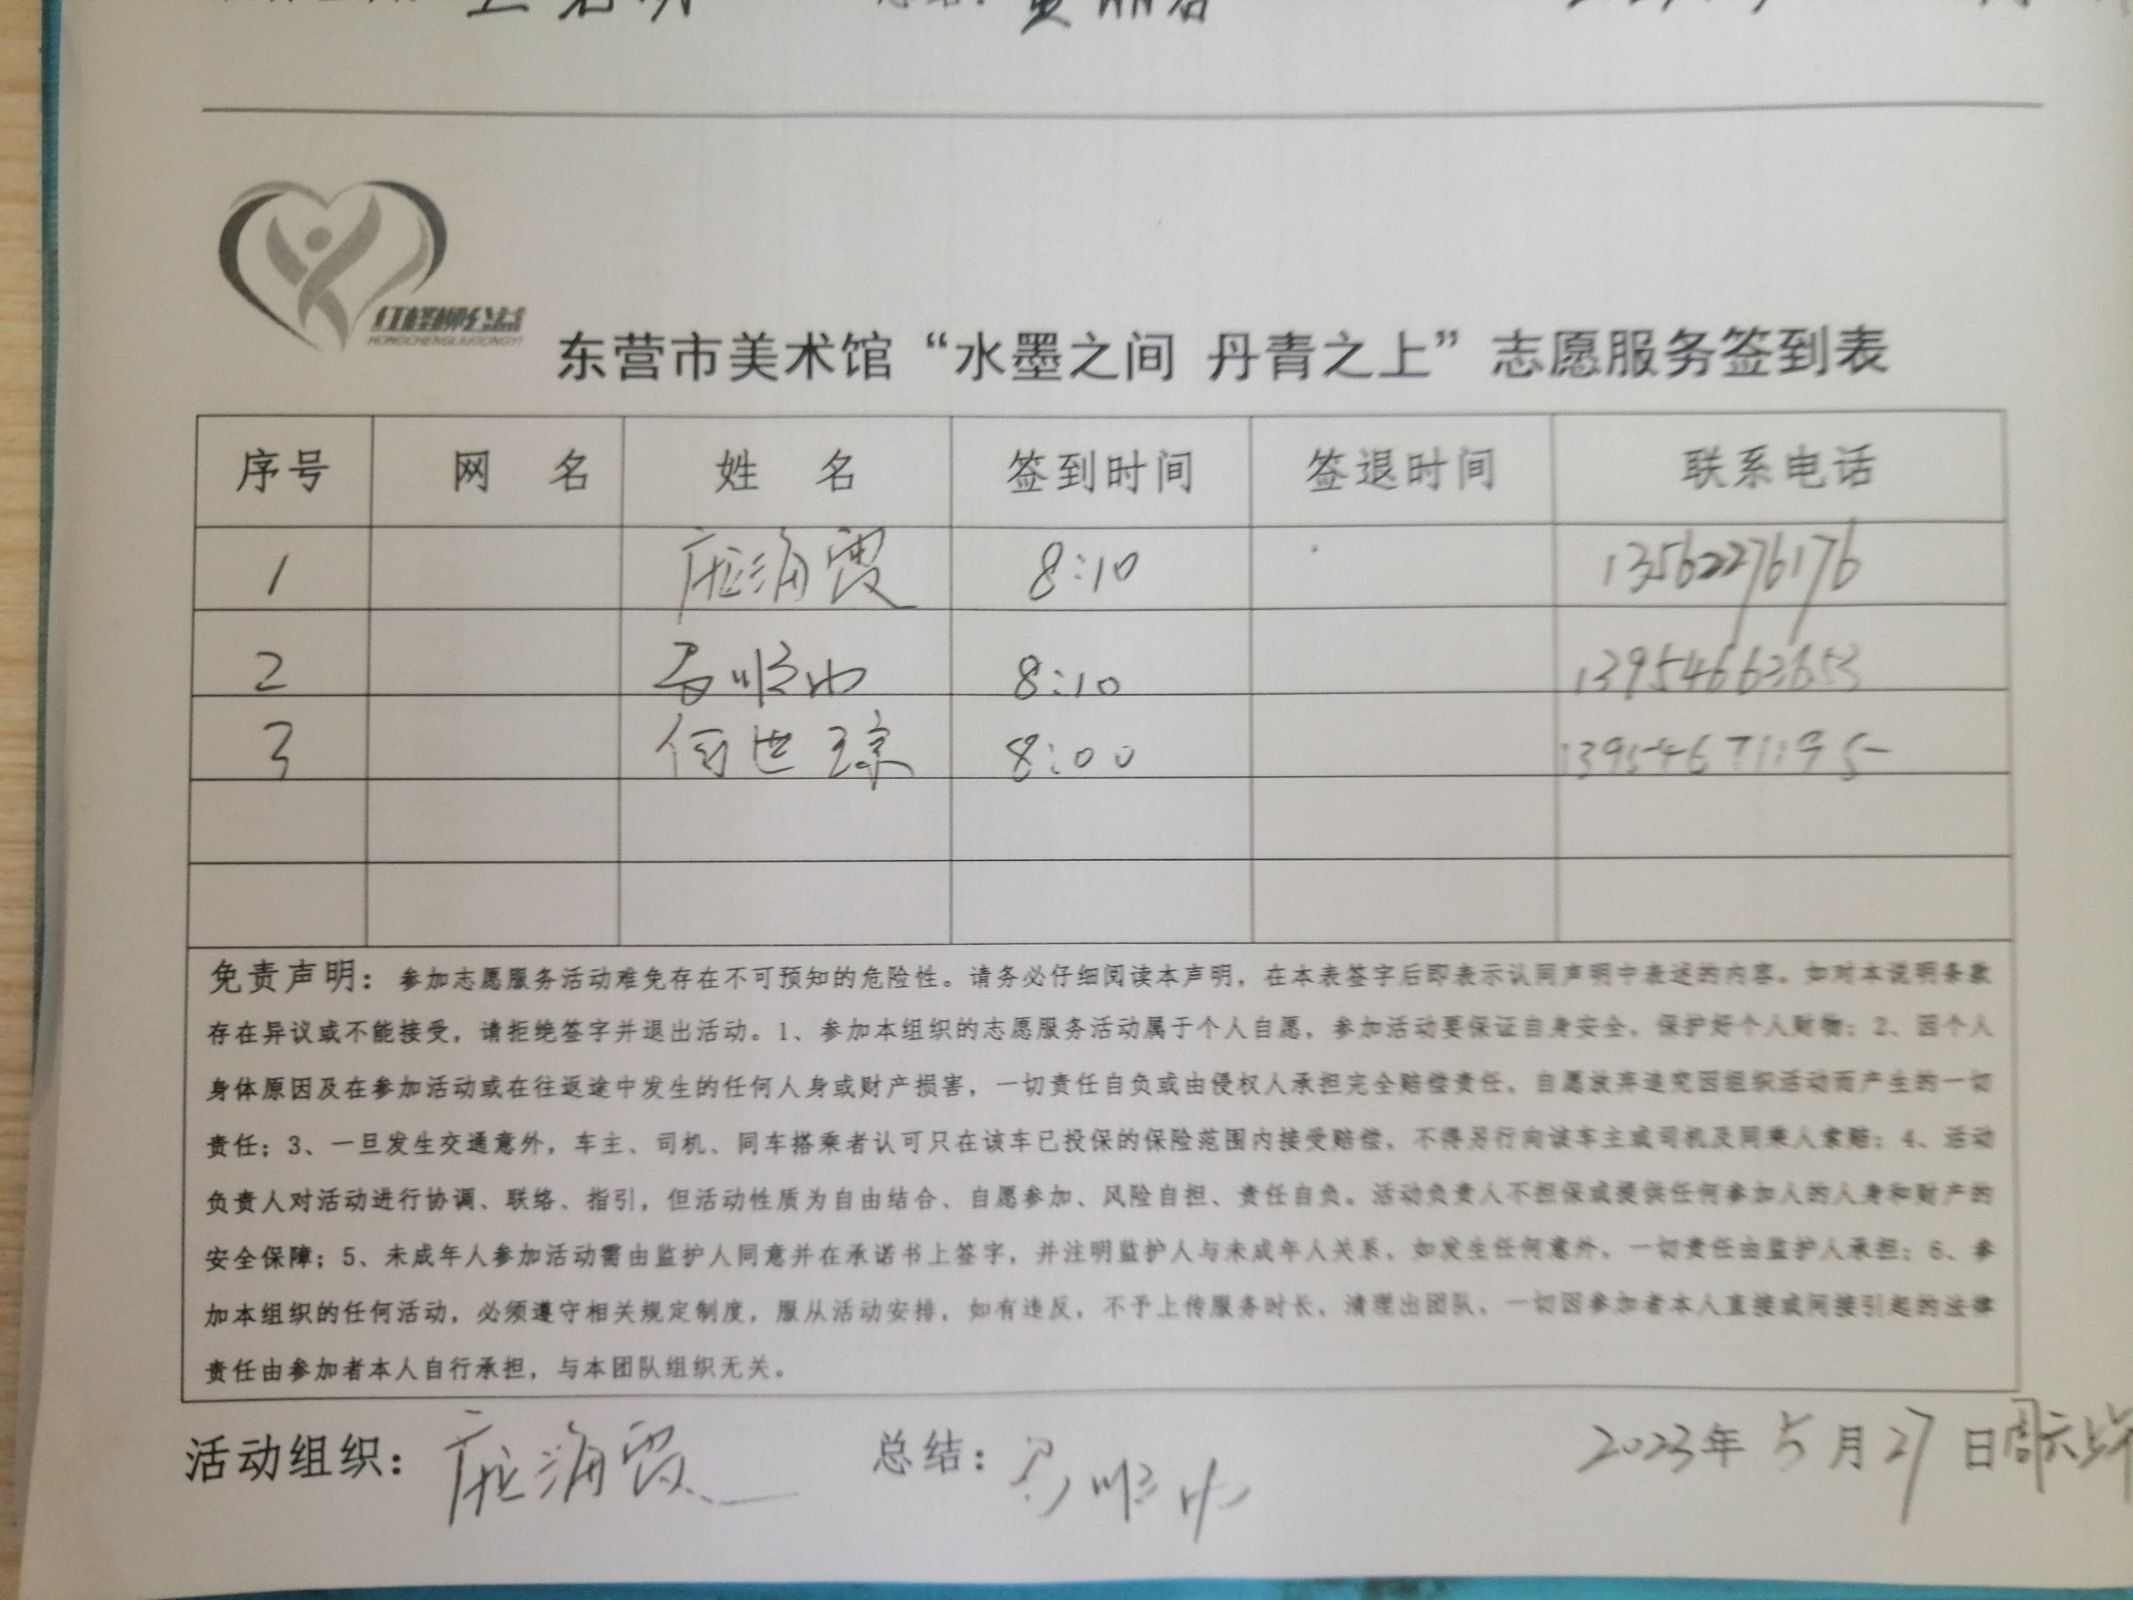 总结:
红柽柳公益
HONGCHENGLIUGONGYI
东营市美术馆“水墨之间 丹青之上”志愿服务签到表
序号 网 名 姓 名 签到时间 签退时间 联系电话
1 庞海霞 8:10 13562276176
2 8:10 13954663653
3 何世琼 8:00 13954671195
免责声明：参加志愿服务活动难免存在不可预知的危险性。请务必仔细阅读本声明，在本表签字后即表示认同声明中表述的内容。如对本说明条款
存在异议或不能接受，请拒绝签字并退出活动。1、参加本组织的志愿服务活动属于个人自愿，参加活动要保证自身安全，保护好个人财物；2、因个人
身体原因及在参加活动或在往返途中发生的任何人身或财产损害，一切责任自负或由侵权人承担完全赔偿责任，自愿放弃追究因组织活动而产生的一切
责任；3、一旦发生交通意外，车主、司机、同车搭乘者认可只在该车已投保的保险范围内接受赔偿，不得另行向该车主或司机及同乘人索赔；4、活动
负责人对活动进行协调、联络、指引，但活动性质为自由结合、自愿参加、风险自担、责任自负。活动负责人不担保或提供任何参加人的人身和财产的
安全保障；5、未成年人参加活动需由监护人同意并在承诺书上签字，并注明监护人与未成年人关系，如发生任何意外，一切责任由监护人承担；6、参
加本组织的任何活动，必须遵守相关规定制度，服从活动安排，如有违反，不予上传服务时长，清理出团队，一切因参加者本人直接或间接引起的法律
责任由参加者本人自行承担，与本团队组织无关。
活动组织：庞海霞 总结： 2023年 5月 27 日 周六上午